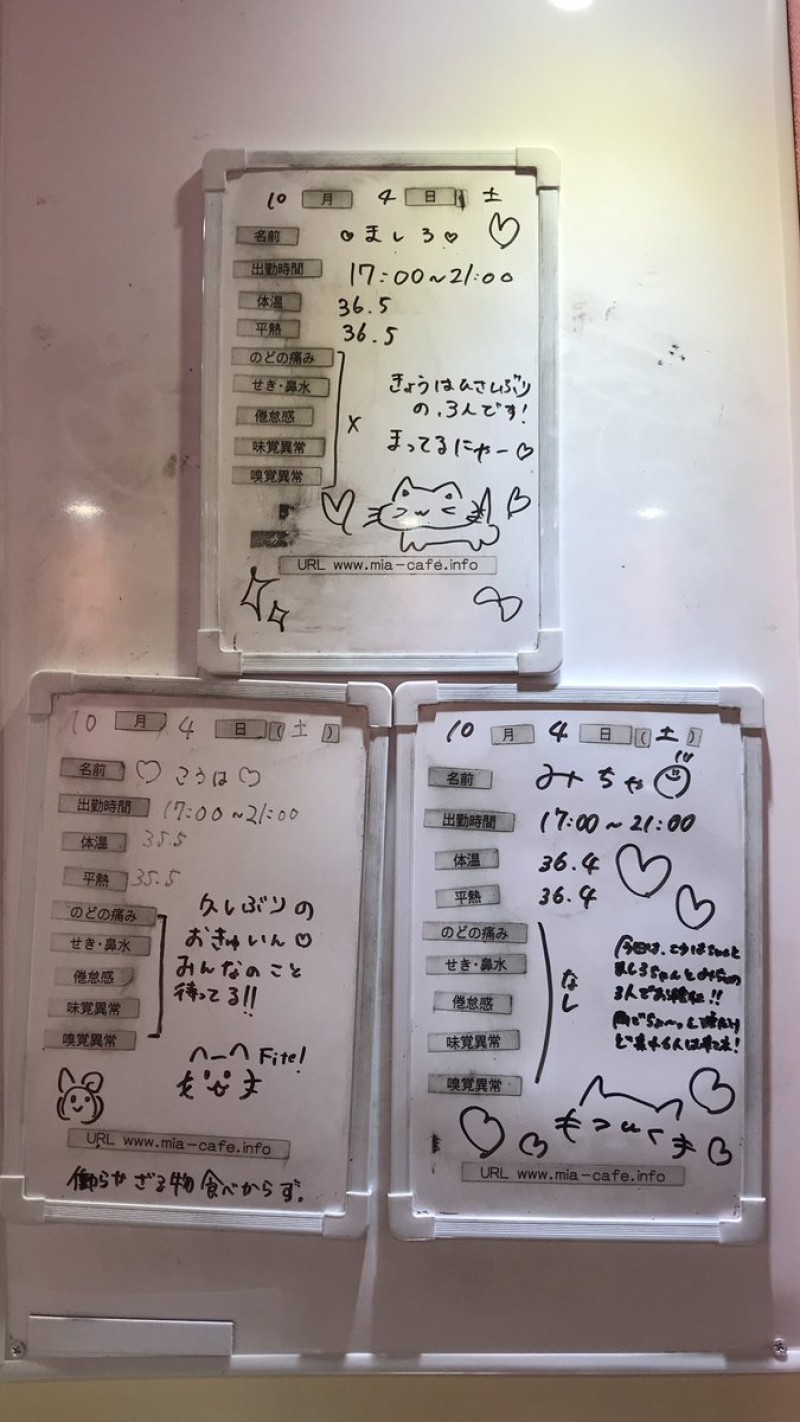 10 月 4 日 ( 土
名前 ♡ましろ♡
出勤時間 17:00〜21:00
体温 36.5
平熱 36.5
のどの痛み
せき・鼻水
倦怠感 ×
味覚異常
嗅覚異常
きょうはひさしぶり
の、3人です!
まってるにゃー♡
URL www.mia-cafe.info
10 月 4 日 ( 土 )
名前 ♡こうは♡
出勤時間 17:00〜21:00
体温 35.5
平熱 35.5
のどの痛み
せき・鼻水
倦怠感
味覚異常
嗅覚異常
久しぶりの
おきゅいん♡
みんなのこと
待ってる!!
Fite!
URL www.mia-cafe.info
働らかざる物食べからず。
10 月 4 日 ( 土 )
名前 みちゃ
出勤時間 17:00〜21:00
体温 36.4
平熱 36.4
のどの痛み
せき・鼻水
倦怠感 なし
味覚異常
嗅覚異常
今日は、こうはちゃんと
ましろちゃんとみちゃの
3人でお給仕!!
URL www.mia-cafe.info